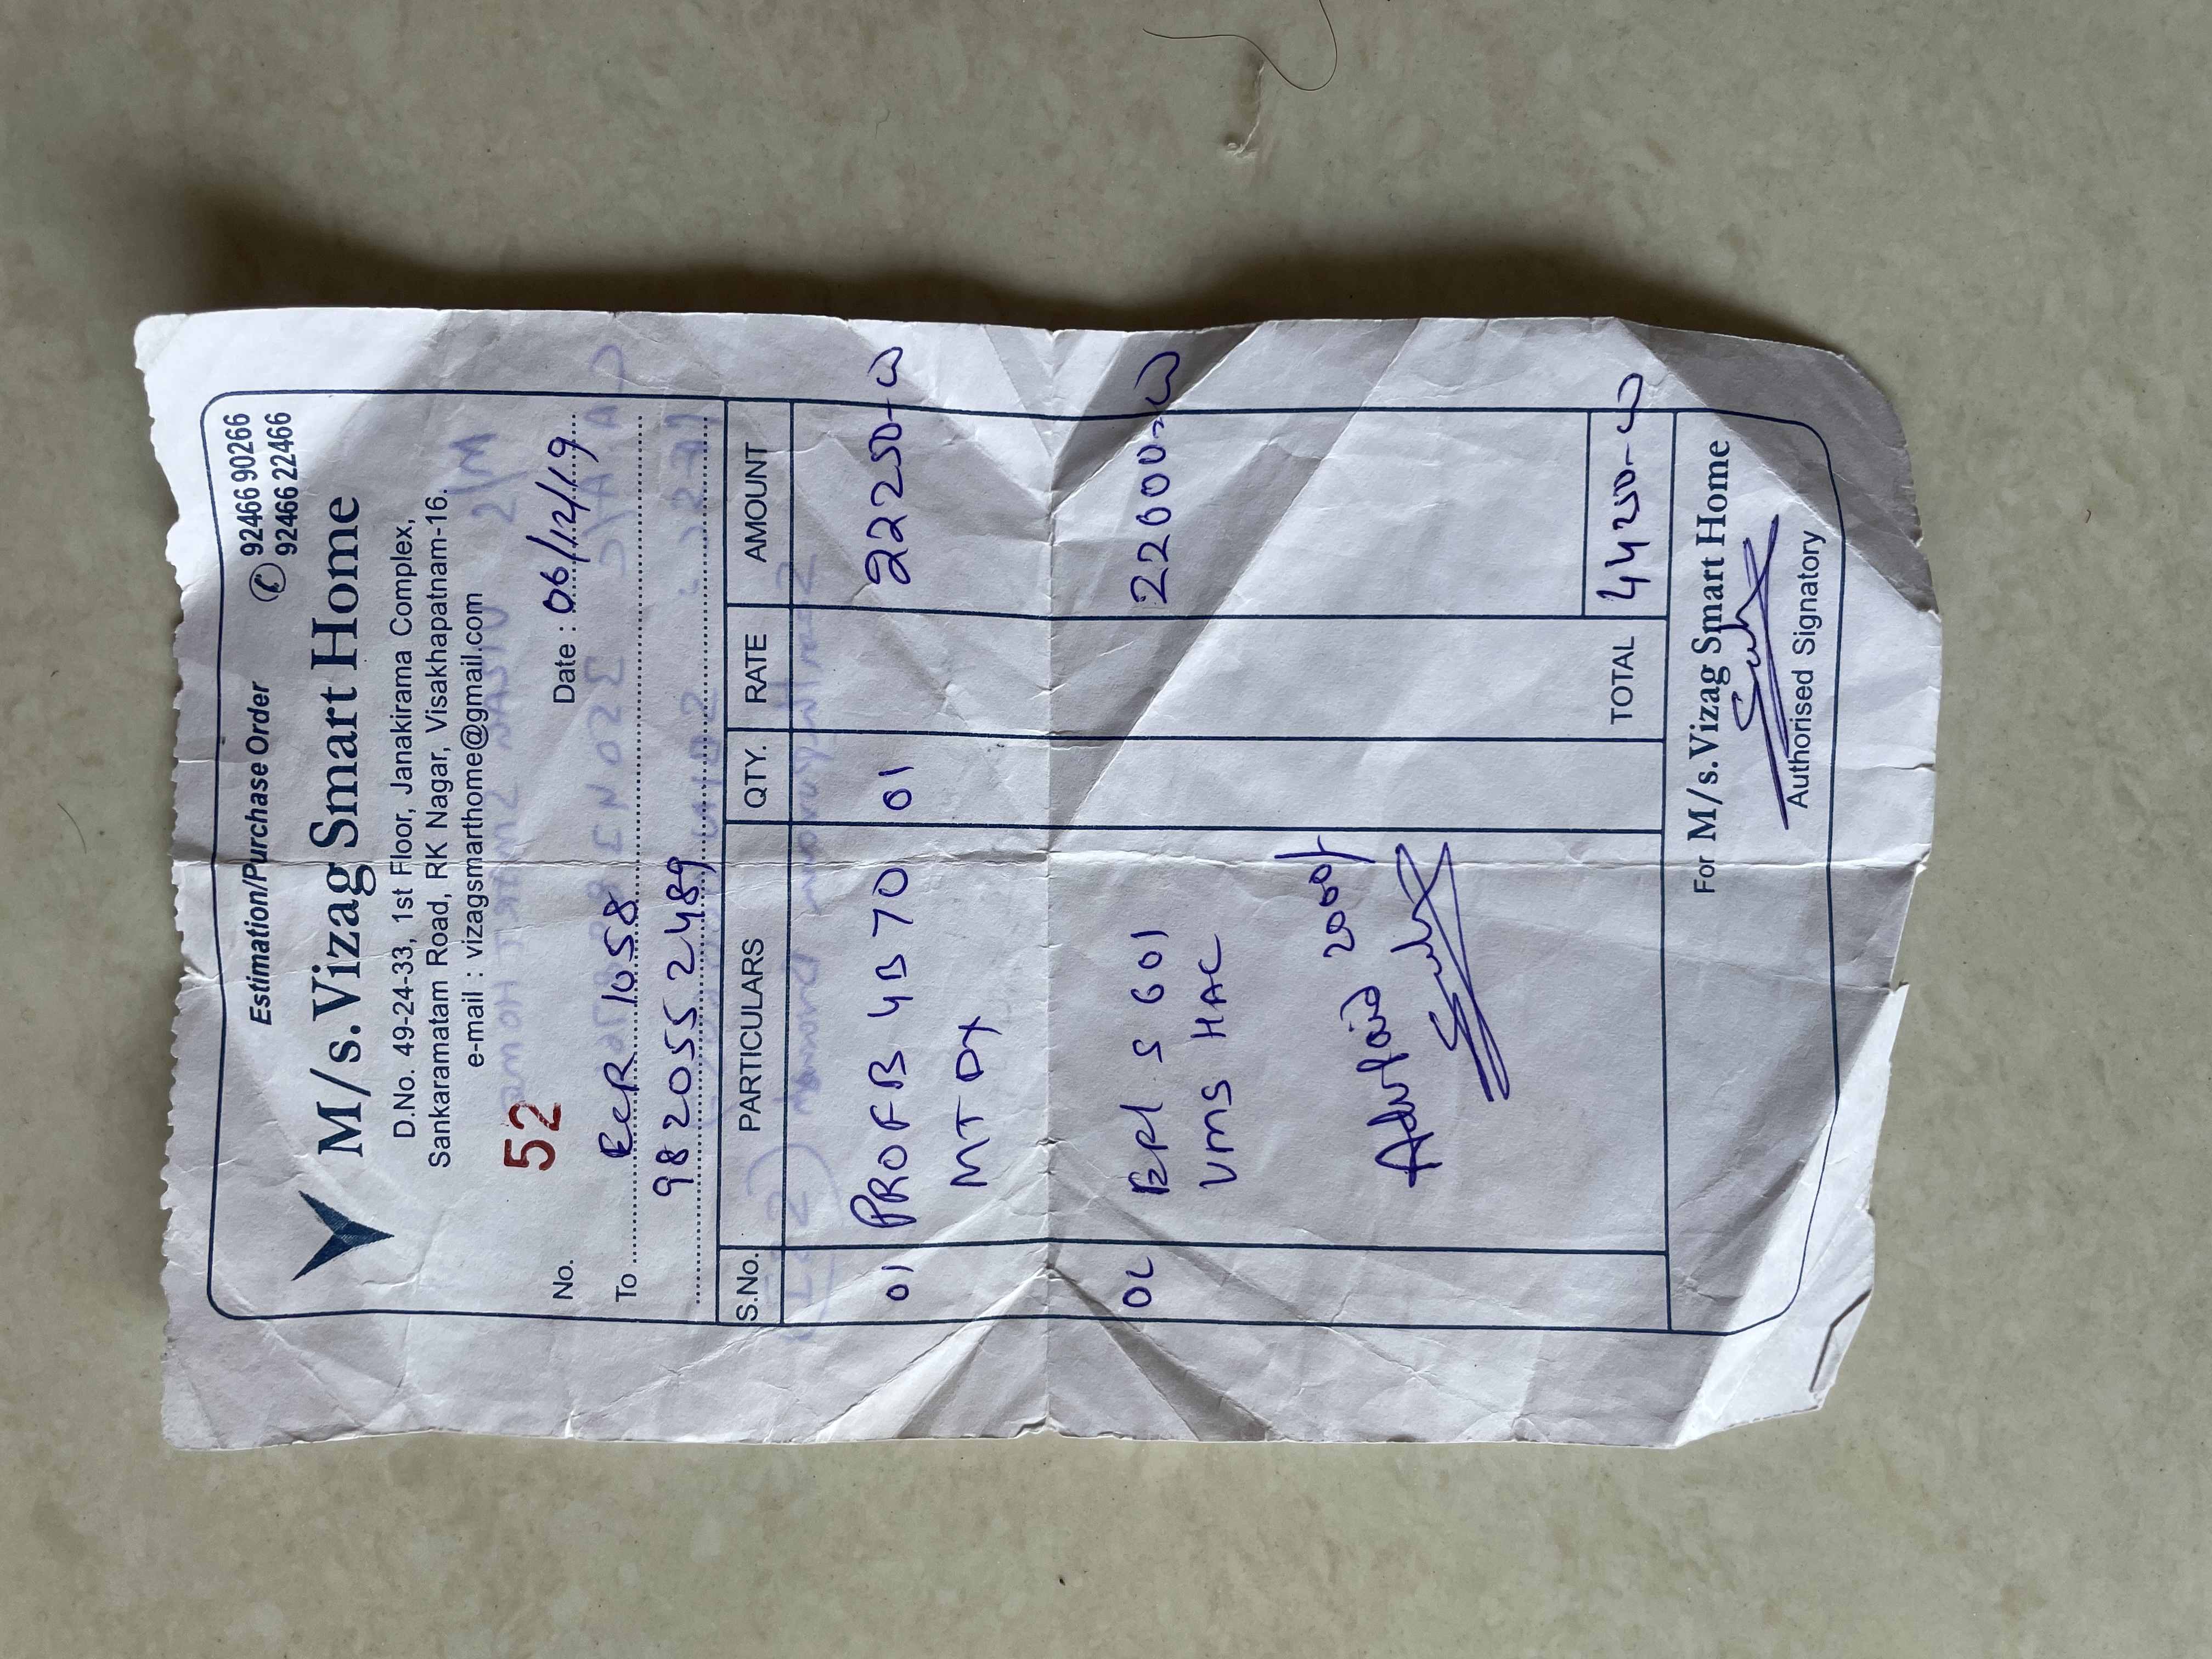 Estimation/Purchase Order
92466 90266
92466 22466
M/s. Vizag Smart Home
D.No. 49-24-33, 1st Floor, Janakirama Complex,
Sankaramatam Road, RK Nagar, Visakhapatnam-16.
e-mail : vizagsmarthome@gmail.com
No. 52
Date : 06/12/19
To 1058
982055 2489
S.No. PARTICULARS QTY. RATE AMOUNT
01 PROFB 4B70 01 22250-00
MT DX
02 S601 22000-00
VMS HAC
2000/-
TOTAL 44250-00
For M/s. Vizag Smart Home
Authorised Signatory